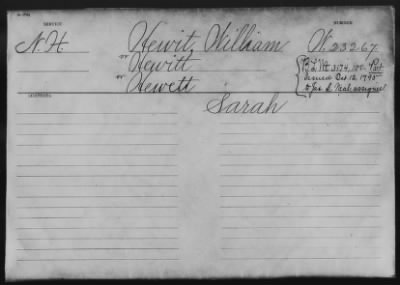 SERVICE
NUMBER
N.H.
Hewit, William
W. 23267
or Hewitt
or Hewett
B.L.Wt. 3174, 100, Pvt
Issued Oct. 12, 1795
to Jas. S. Neal assignee
Sarah